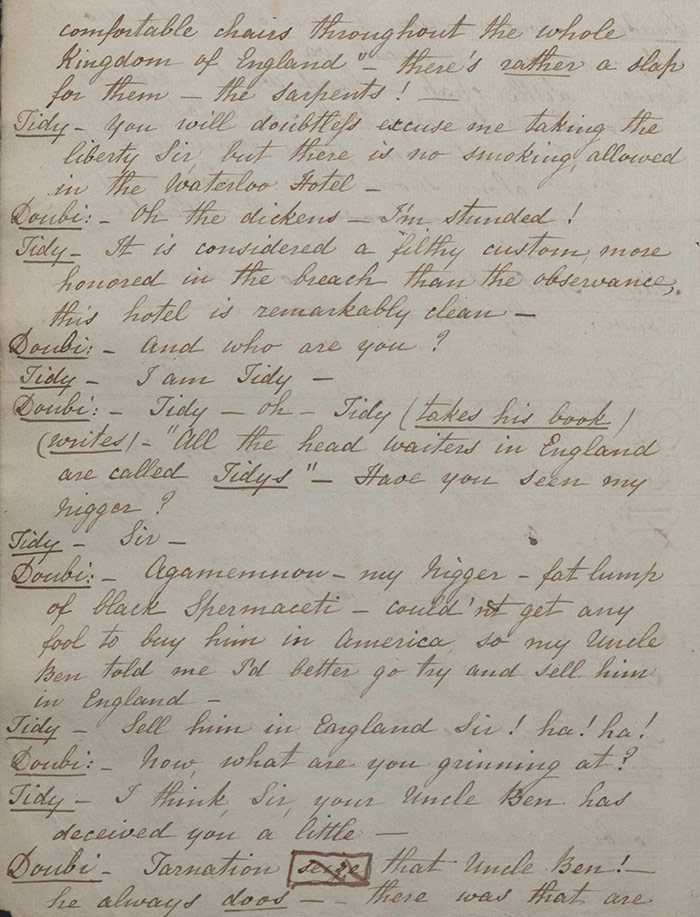 comfortable chairs throughout the whole
Kingdom of England" - there's rather a slap
for them - the sarpents! -
Tidy - You will doubtless excuse me taking the
liberty Sir, but there is no smoking, allowed
in the Waterloo Hotel -
Doubi: - Oh the dickens - I'm stunded!
Tidy - It is considered a filthy custom, more
honored in the breach than the observance,
this hotel is remarkably clean -
Doubi: - And who are you?
Tidy - I am Tidy -
Doubi: - Tidy - oh - Tidy (takes his book)
(writes) - "All the head waiters in England
are called Tidys" - Have you seen my
Nigger?
Tidy - Sir -
Doubi: - Agamemnon - my Nigger - fat lump
of black Spermaceti - could'nt get any
fool to buy him in America, so my Uncle
Ben told me I'd better go try and sell him
in England -
Tidy - Sell him in England Sir! ha! ha!
Doubi: - Now, what are you grinning at?
Tidy - I think, Sir, your Uncle Ben has
deceived you a little -
Doubi - Tarnation seize that Uncle Ben! -
he always doos - there was that are